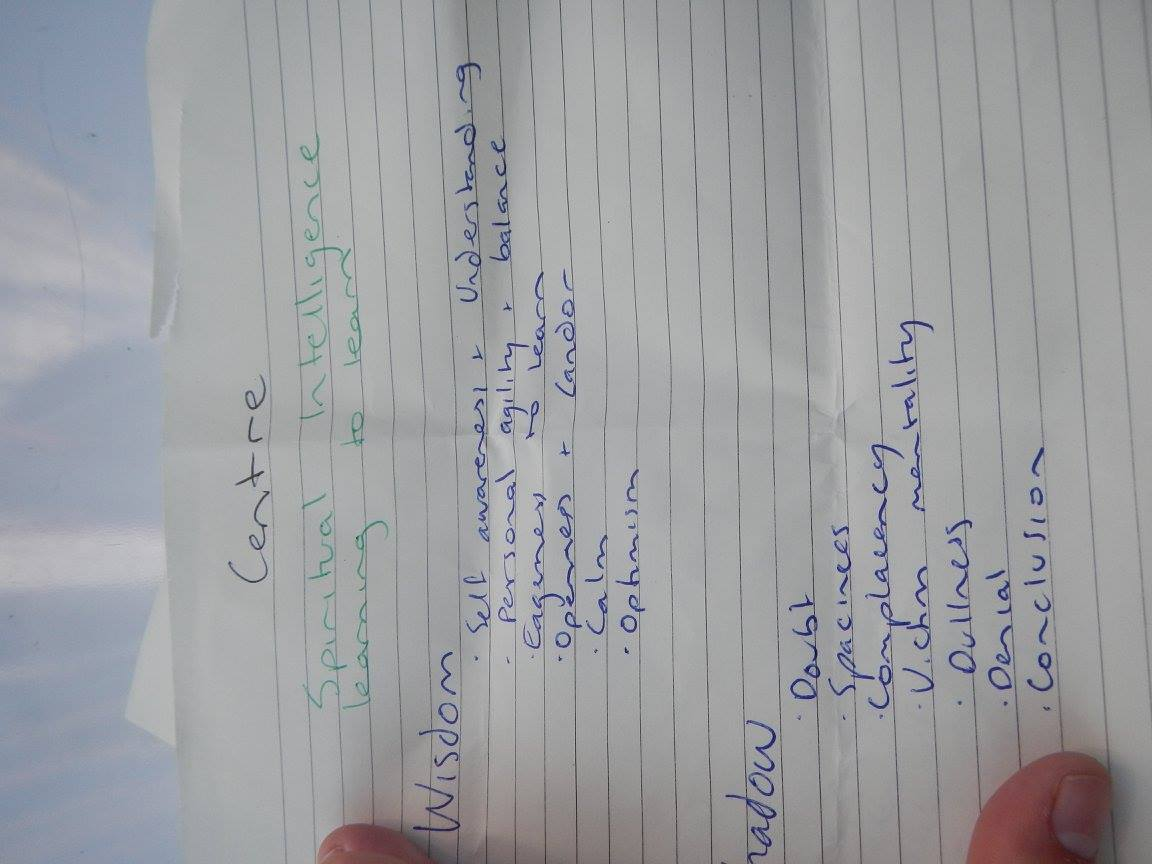 Centre
Spiritual Intelligence
learning to learn
Wisdom
· Self awareness + Understanding
· Personal agility + balance
· Eagerness to learn
· Openness + Candor
· Calm
· Optimism
hadow
· Doubt
· Spaciness
· Complacency
· Victim mentality
· Dullness
· Denial
· Conclusion